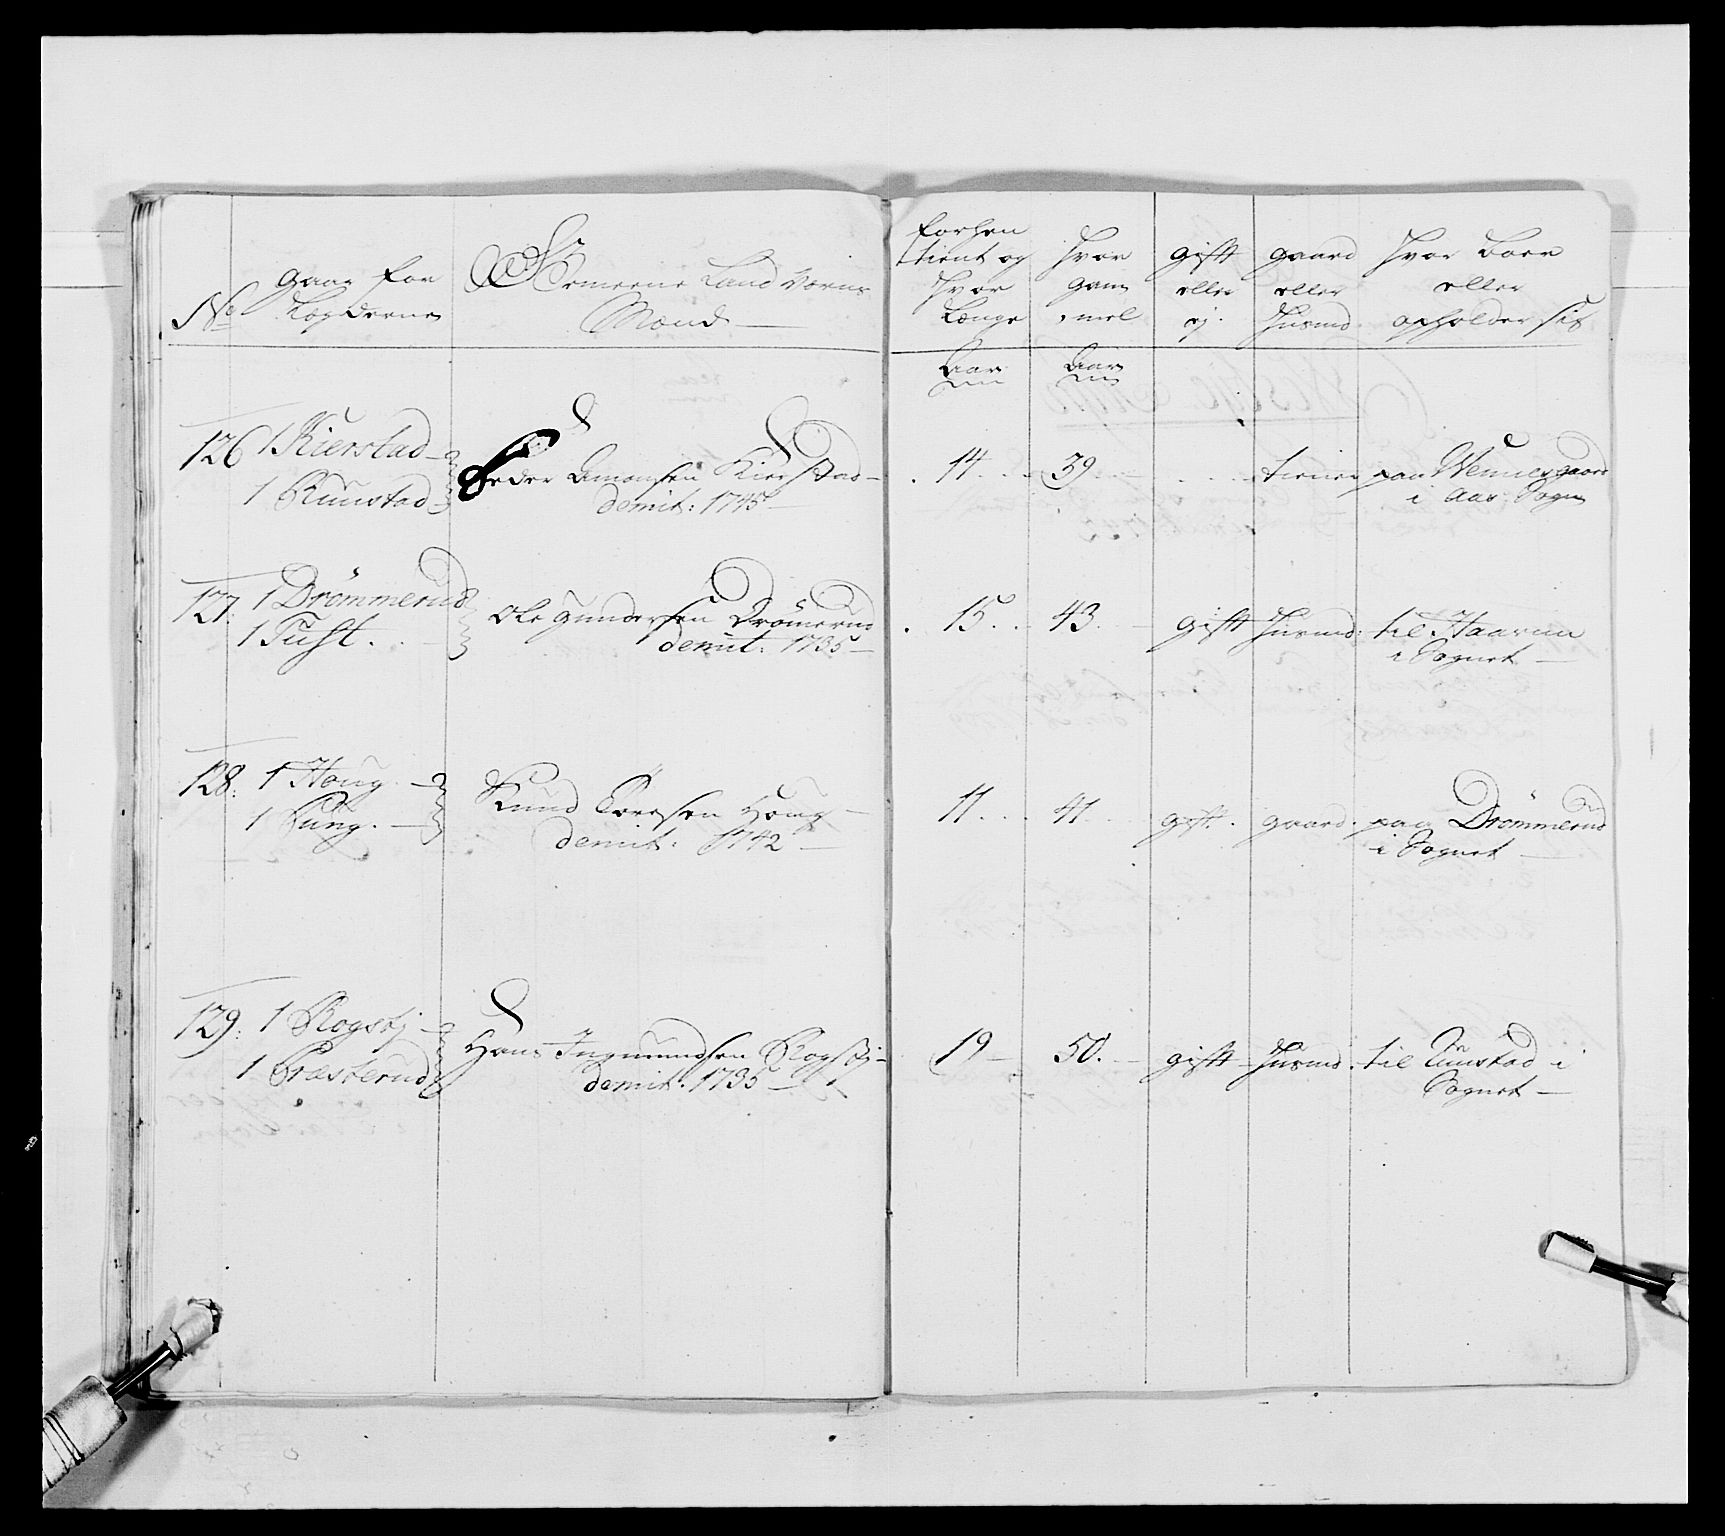 No
gaar for
Legderne
Gemeene Land Værns
Mænd
forhen
tient og
hvor
Længe
hvor
gam
mel
gift
eller
ej.
gaard
eller
husmd.
hvor boer
eller
opholder sig
Aar
Aar
126 1 Kierstad
1 Runstad
Peder Amonsen Kierstad
demit: 1745
14
39
tiener paa Wennersgaard
i Aas Sogn
127. 1 Drömmerud
1 Tust.
Ole Gundersen Drömerud
demit: 1735
15
43
gift husmd: til Haarum
i Sognet
128: 1 Houg
1 Pung.
Knud Toresen Houg
demit: 1742
11
41
gift. gaard. paa Drömmerud
i Sognet
129: 1 Rogstj
1 Præsterud
Hans Ingmundsen Rogstj
demit. 1735
19
50.
gift husmd. til Runstad i
Sognet